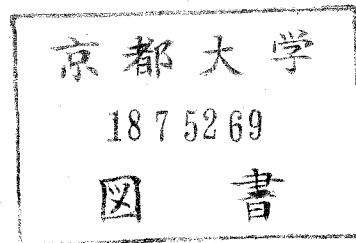 京都大学
1875269
図書